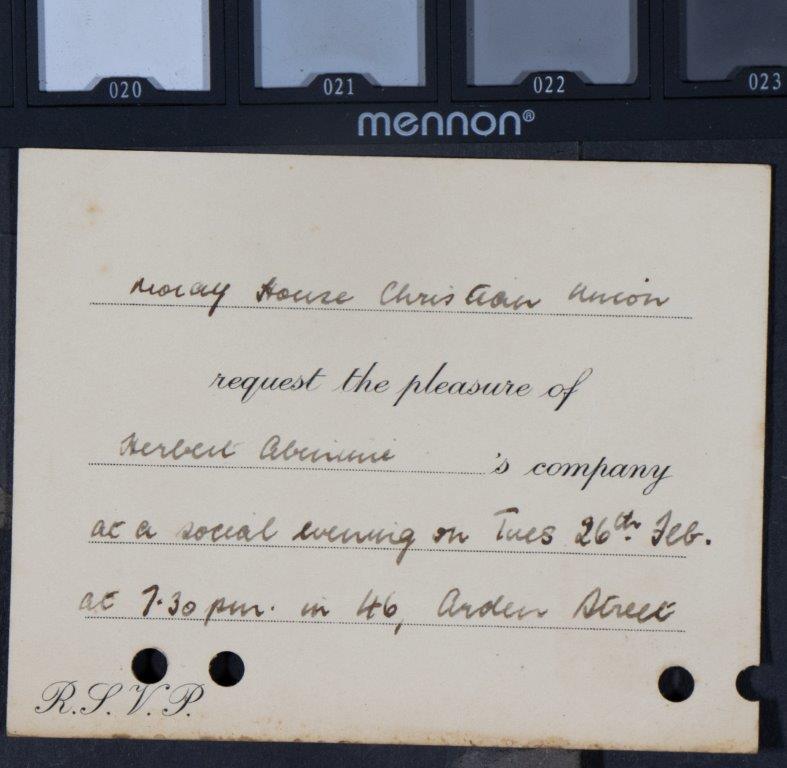 020 021 022 023
mennon®
Moray House Christian Union
request the pleasure of
Herbert 's company
at a social evening on Tues 26th. Feb.
at 7.30 pm. in 46, Arden Street
R.S.V.P.